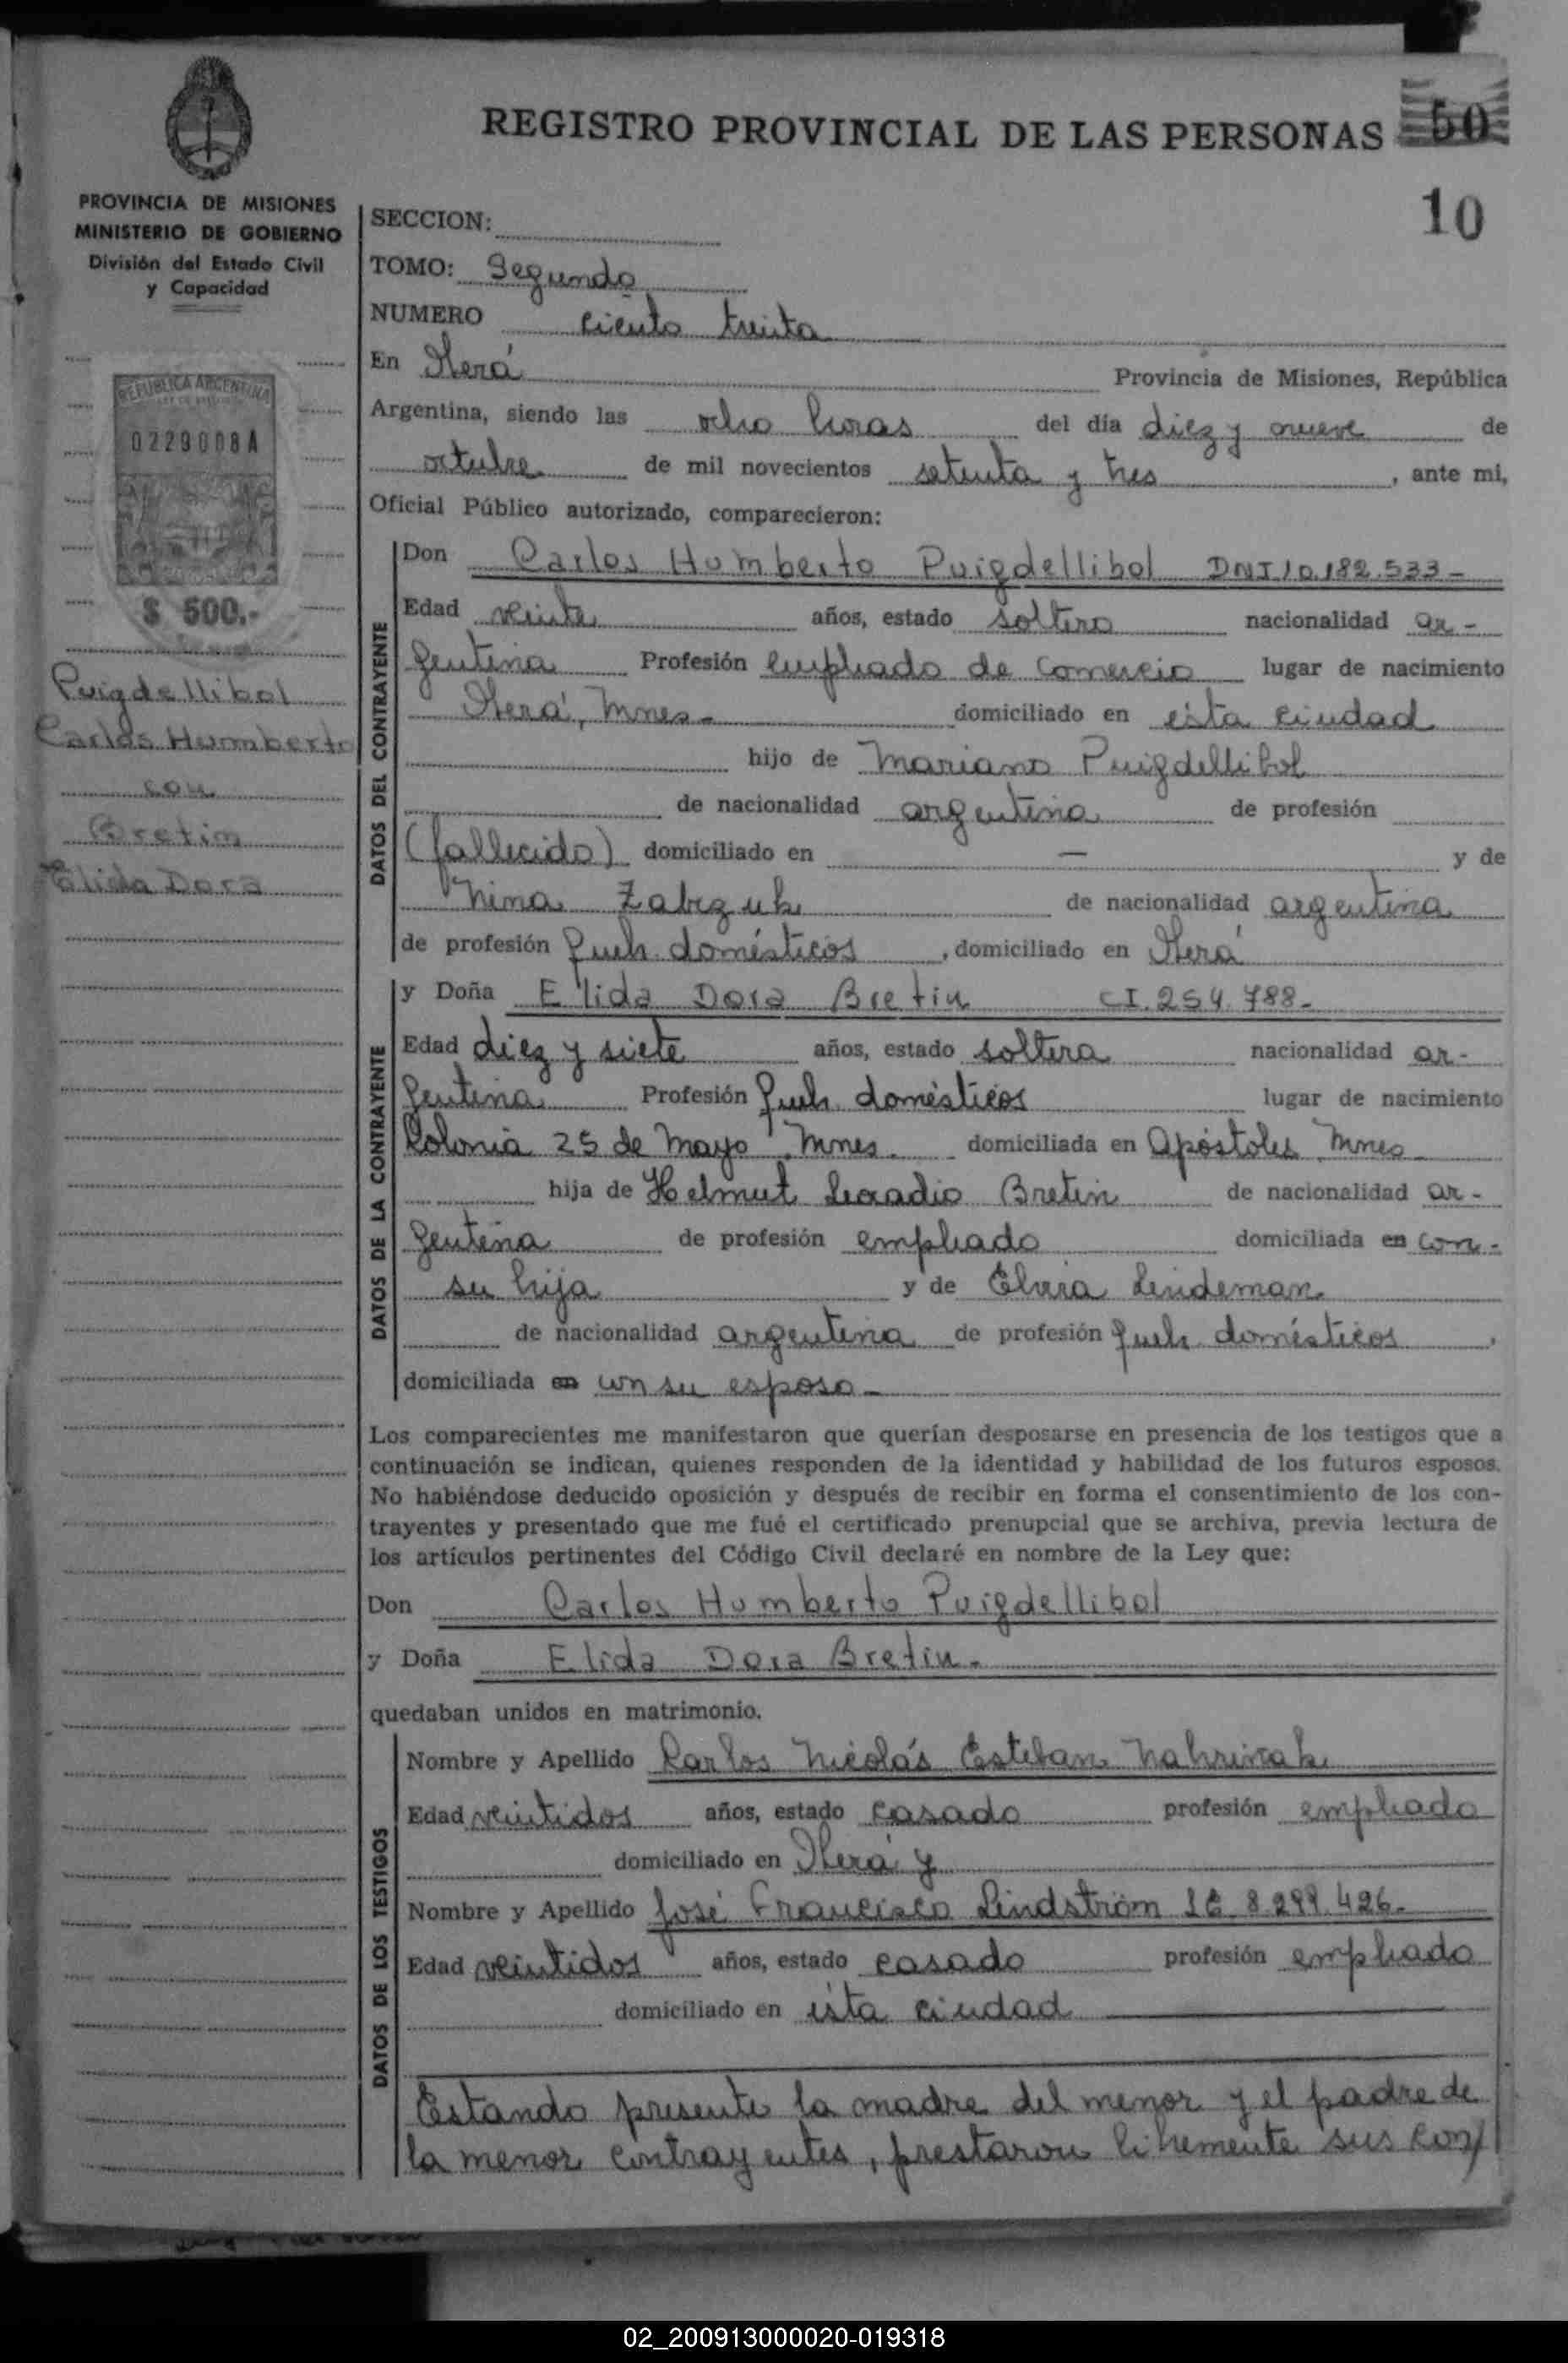 REGISTRO PROVINCIAL DE LAS PERSONAS 50
10
PROVINCIA DE MISIONES
MINISTERIO DE GOBIERNO
División del Estado Civil
y Capacidad
REPUBLICA ARGENTINA
0229008A
$ 500.-
Puigdellibol
Carlos Humberto
con
Bretin
Elida Dora
SECCION:
TOMO: Segundo
NUMERO ciento treinta
En Oberá Provincia de Misiones, República
Argentina, siendo las ocho horas del día diez y nueve de
octubre de mil novecientos setenta y tres , ante mi,
Oficial Público autorizado, comparecieron:
DATOS DEL CONTRAYENTE
Don Carlos Humberto Puigdellibol DNI 10.182.533-
Edad veinte años, estado soltero nacionalidad ar-
gentina Profesión empleado de comercio lugar de nacimiento
Oberá, Mnes- domiciliado en ésta ciudad
hijo de Mariano Puigdellibol
de nacionalidad argentina de profesión
(fallecido) domiciliado en — y de
Nina Zabczuk de nacionalidad argentina
de profesión queh. domésticos , domiciliado en Oberá
DATOS DE LA CONTRAYENTE
y Doña Elida Dora Bretin CI. 254.788-
Edad diez y siete años, estado soltera nacionalidad ar-
gentina Profesión queh. domésticos lugar de nacimiento
Colonia 25 de Mayo, Mnes. domiciliada en Apóstoles Mnes
hija de Helmut Leocadio Bretin de nacionalidad ar-
gentina de profesión empleado domiciliada en con-
su hija y de Elvira Lindeman
de nacionalidad argentina de profesión queh. domésticos ,
domiciliada en con su esposo-
Los comparecientes me manifestaron que querían desposarse en presencia de los testigos que a
continuación se indican, quienes responden de la identidad y habilidad de los futuros esposos.
No habiéndose deducido oposición y después de recibir en forma el consentimiento de los con-
trayentes y presentado que me fué el certificado prenupcial que se archiva, previa lectura de
los artículos pertinentes del Código Civil declaré en nombre de la Ley que:
Don Carlos Humberto Puigdellibol
y Doña Elida Dora Bretin-
quedaban unidos en matrimonio.
DATOS DE LOS TESTIGOS
Nombre y Apellido Carlos Nicolás Esteban
Edad veintidos años, estado casado profesión empleado
domiciliado en Oberá y
Nombre y Apellido José Francisco Lindström LE 8.299.426-
Edad veintidos años, estado casado profesión empleado
domiciliado en ésta ciudad
Estando presente la madre del menor y el padre de
la menor contrayentes, prestaron libremente sus con/
02_200913000020-019318